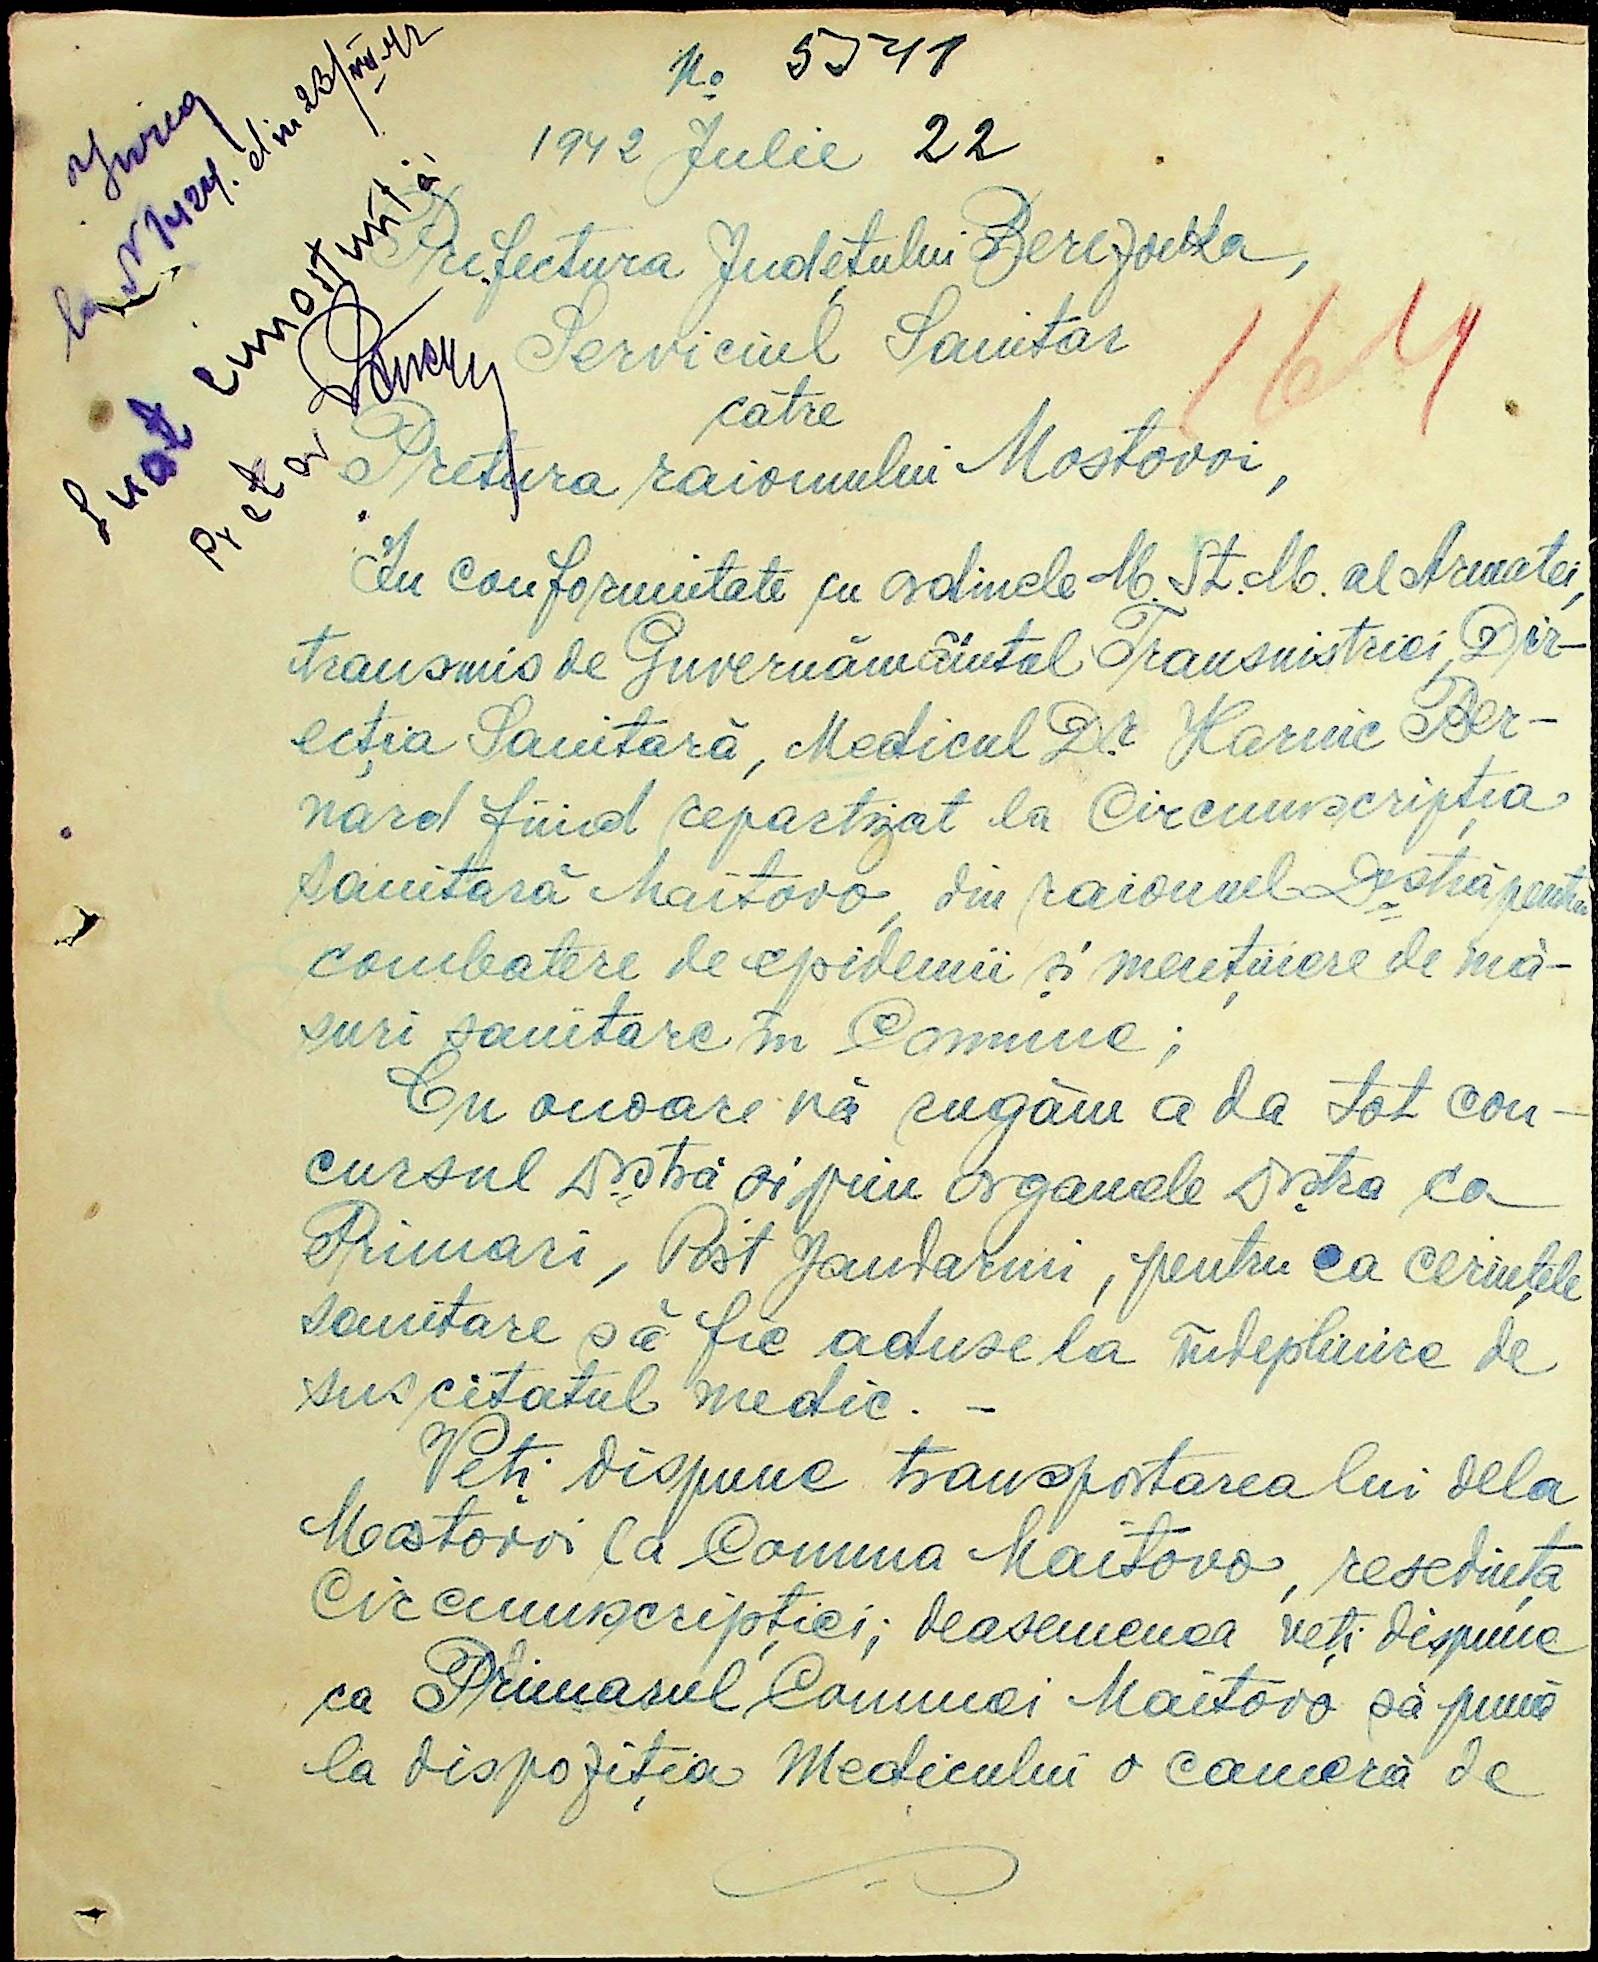 No 5541
1942 Julie 22
Înreg
la N 1424. din 23/VII-42
Luat cunoștință
Pretor
Prefectura Județului Berezovka,
Serviciul Sanitar
către
Pretura raionului Mostovoi,
164
In conformitate cu ordinele M. St. M. al Armatei,
transmis de Guvernământul Transnistriei, Dir-
ecția Sanitară, Medicul Dr. Harnic Ber-
nard fiind repartizat la Circumscripția
sanitară Maitovo, din raionul Dvstră pentru
combatere de epidemii și menținere de mă-
suri sanitare în Comune;
Cu onoare vă rugăm a da tot con-
cursul Dvstră și prin organele Dvstra ca
Primari, Post Jandarmi, pentru ca cerințele
sanitare să fie aduse la îndeplinire de
sus citatul medic. -
Veți dispune transportarea lui dela
Mostovoi la Comuna Maitovo, resedința
Circumscripției; deasemenea veți dispune
ca Primarul Comunei Maitovo să pună
la dispoziția Medicului o cameră de